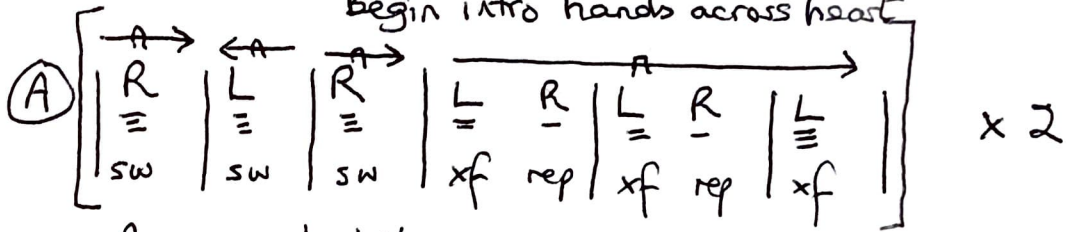 begin intro hands across heart
A A A A
Ⓐ [ | R | L | R | L R | L R | L | ] x 2
sw | sw | sw | xf rep | xf rep | xf